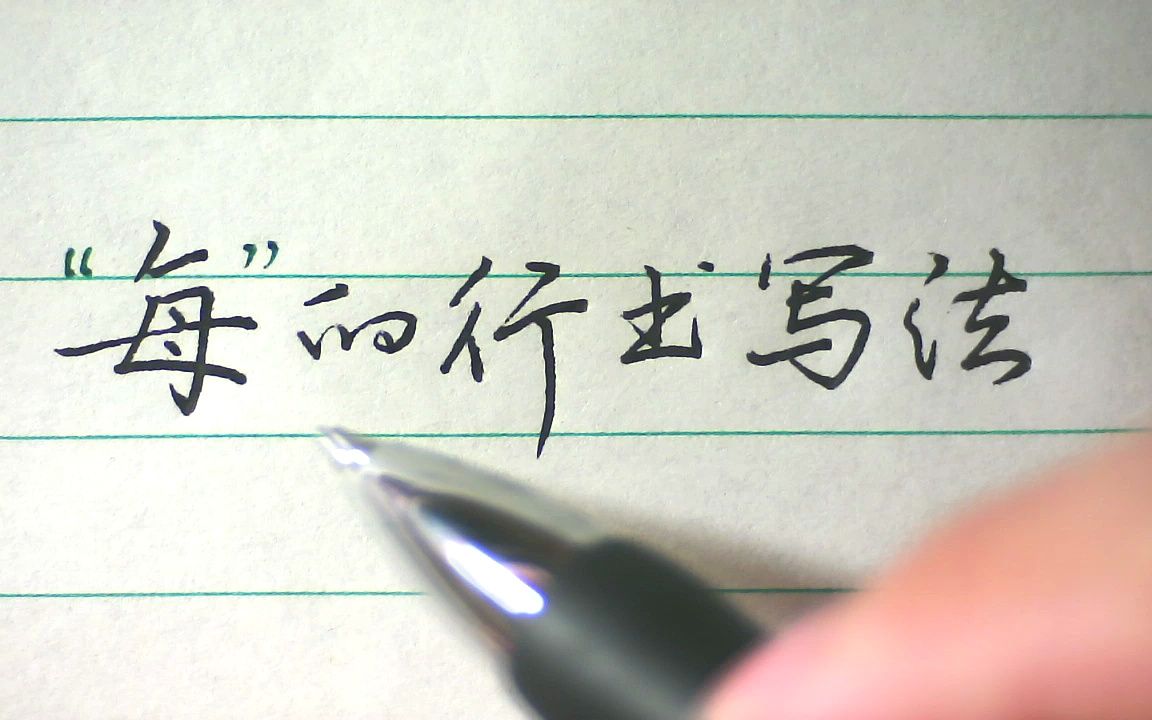 “每”的行书写法